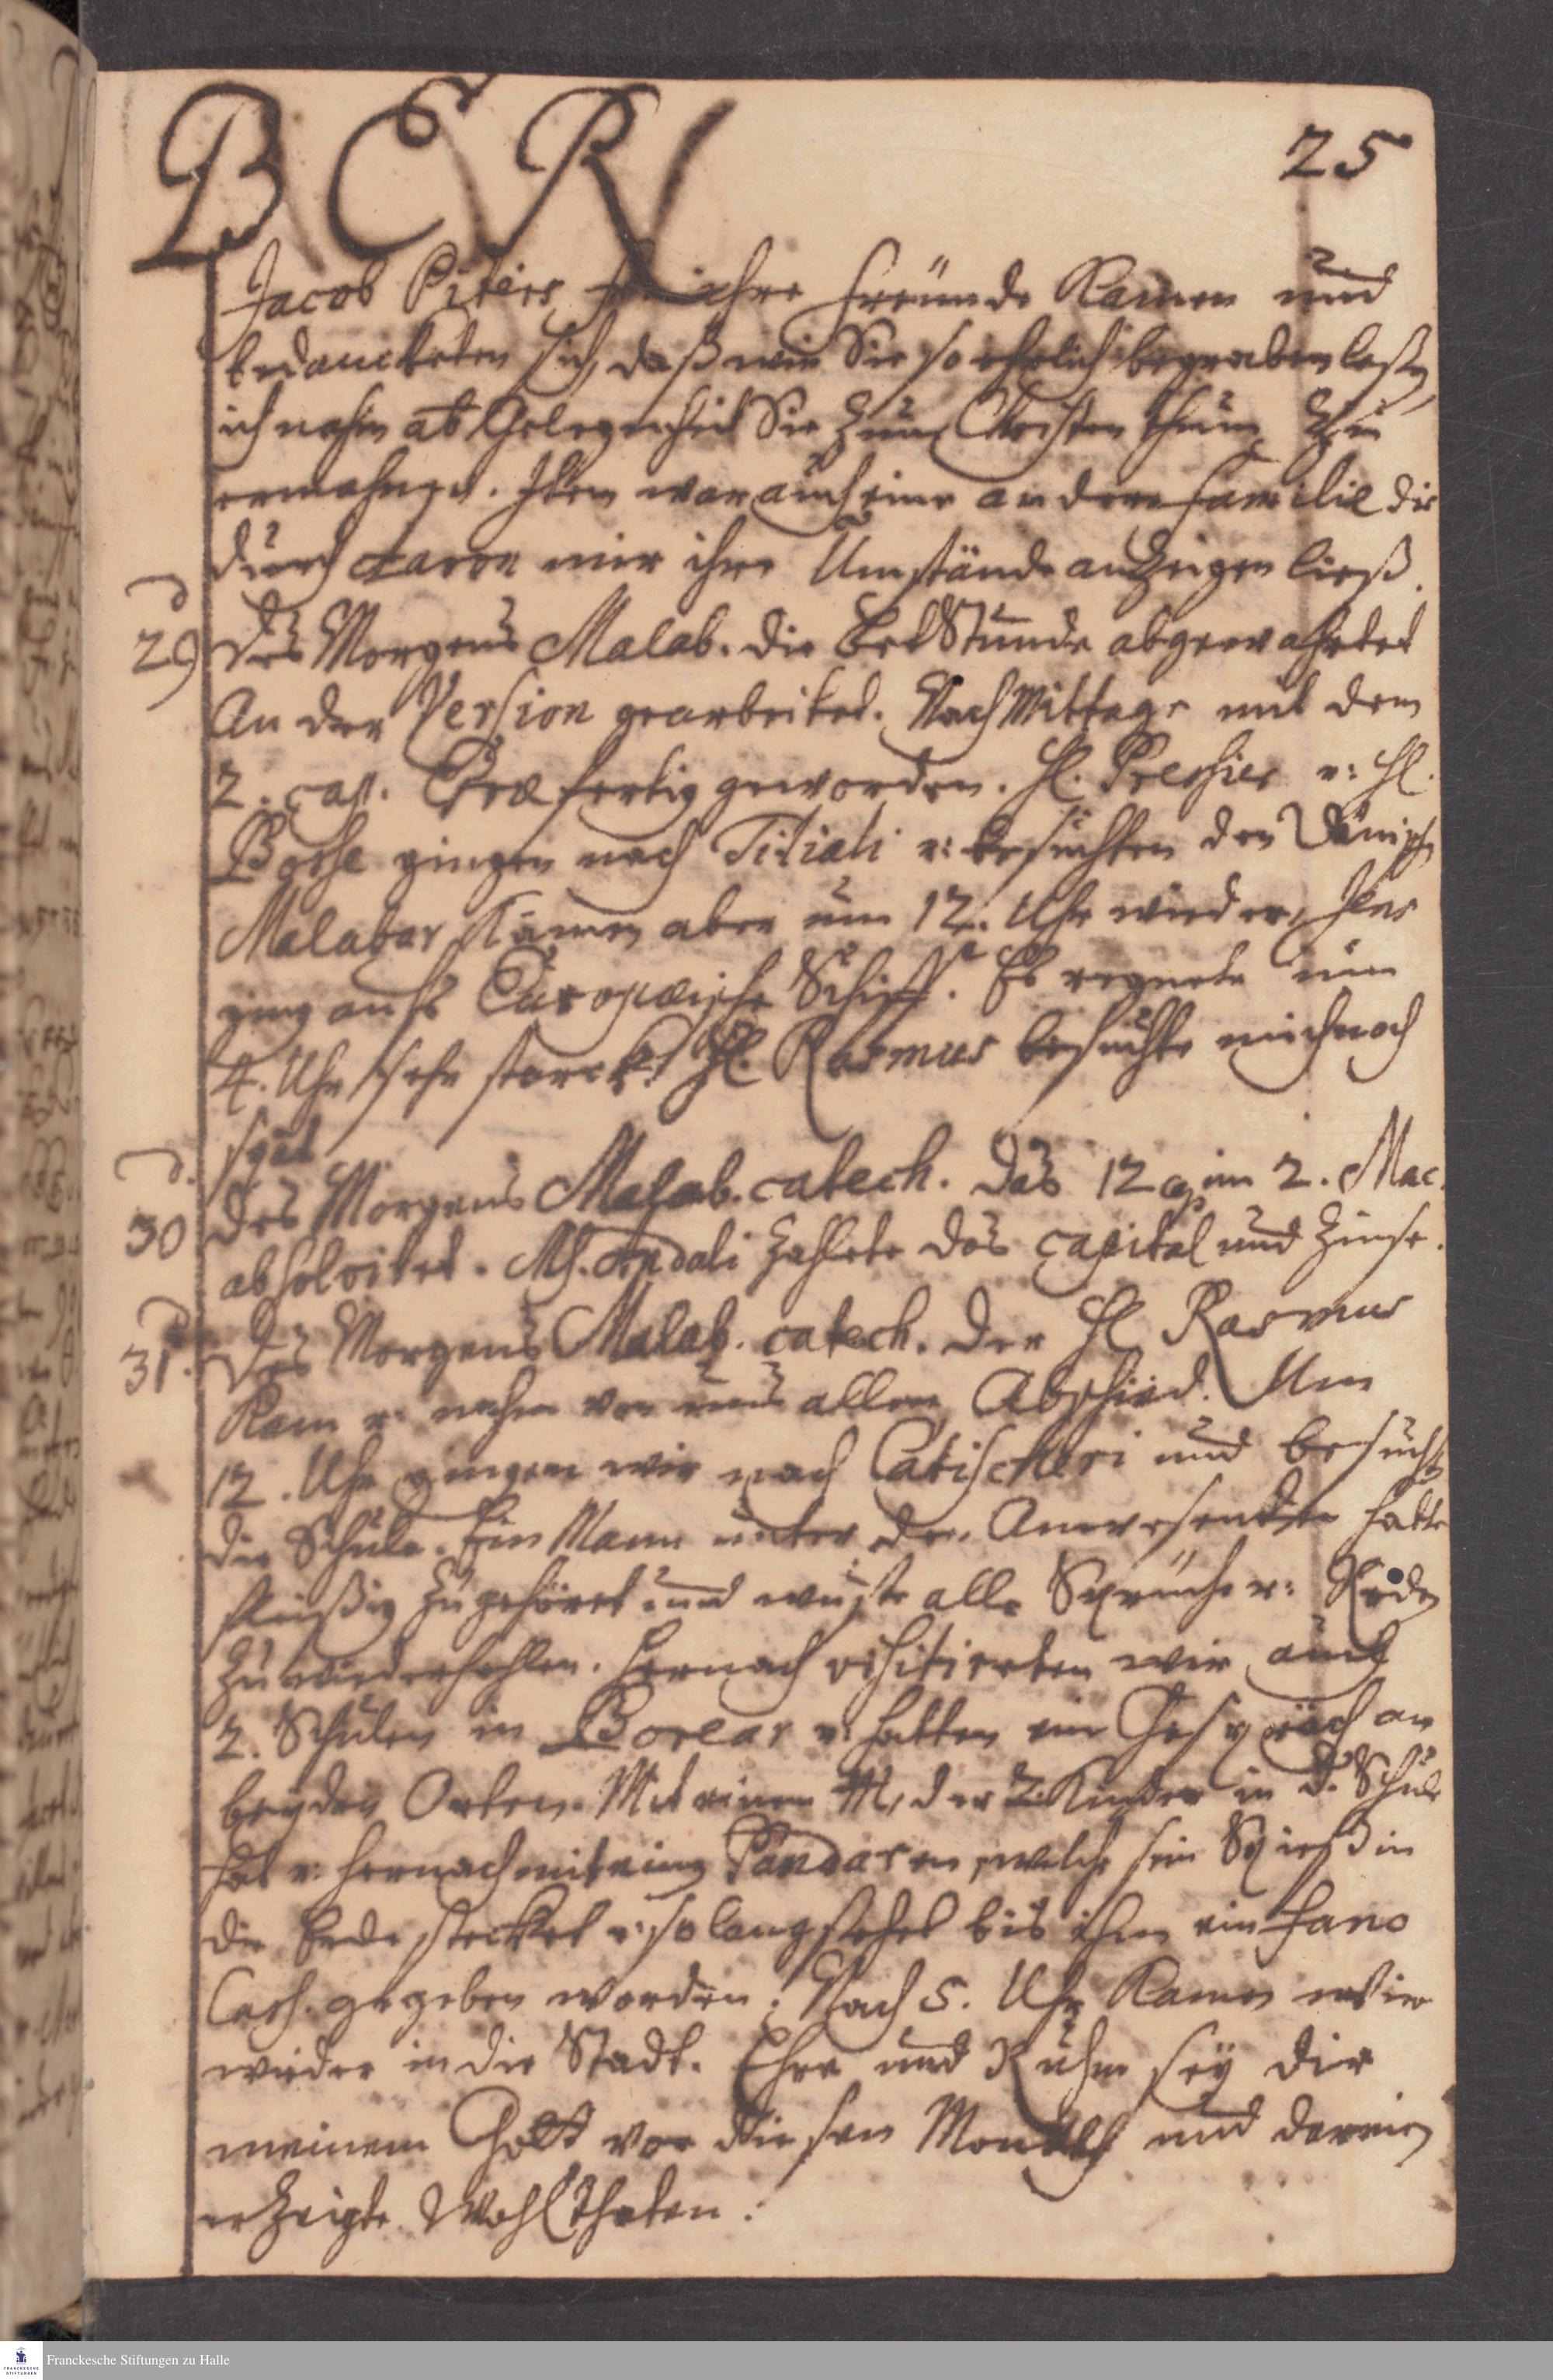 B C R
25
Jacob Piters ihre Freunde kamen und
bedanckten sich, daß wir Sie so ehrlich begraben laßen,
ich nahm ab Gelegenheit Sie zum Christenthum zu
ermahnen. Item war auch eine andere Familie die
durch Aaron mir ihre Umstände anzeigen ließ.
d
29 Des Morgens Malab. die BetStunde abgewahrtet
An der Version gearbeitet. NachMittags mit dem
2. cap. Esræ fertig geworden. H. Pressier u: H.
Bosse gingen nach Titiali u: besuchten den Dänischen
Malabar, kamen aber um 12. Uhr wieder,
ging aufs Europæische Schiff. Es regnete um
4. Uhr sehr starck. H. Rasmus besuchte mich noch
spät
d.
30 Des Morgens Malab. catech. das 12 im 2. Mac.
absolvitet. zahlete das capital und Zinse.
d
31. Des Morgens Malab. catech. Der H Rasmus
kam u: nahm von uns allen Abschied. Um
12. Uhr gingen wir nach Catischeri und besucht
die Schule. Ein Mann unter den Anwesenden hatte
fleißig zugehöret und wuste alle Sprüche u: Reden
zu wiederhohlen. Hernach visitierten wir auch
2. Schulen in Borear u: hatten ein Gespräch an
beyden Orten. Mit einem M, der 2. Kinder in d. Schule
hat u: hernach mit einem Pandaren, welcher sein Spieß in
die Erde stecket u: so lang stehet bis ihm ein Fano
Cash. gegeben worden. Nach 5. Uhr kamen wir
wieder in die Stadt. Ehre und Ruhm sey dir
meinem Gott vor diesen Monath und darein
erzeigte Wohlthaten.
Franckesche Stiftungen zu Halle